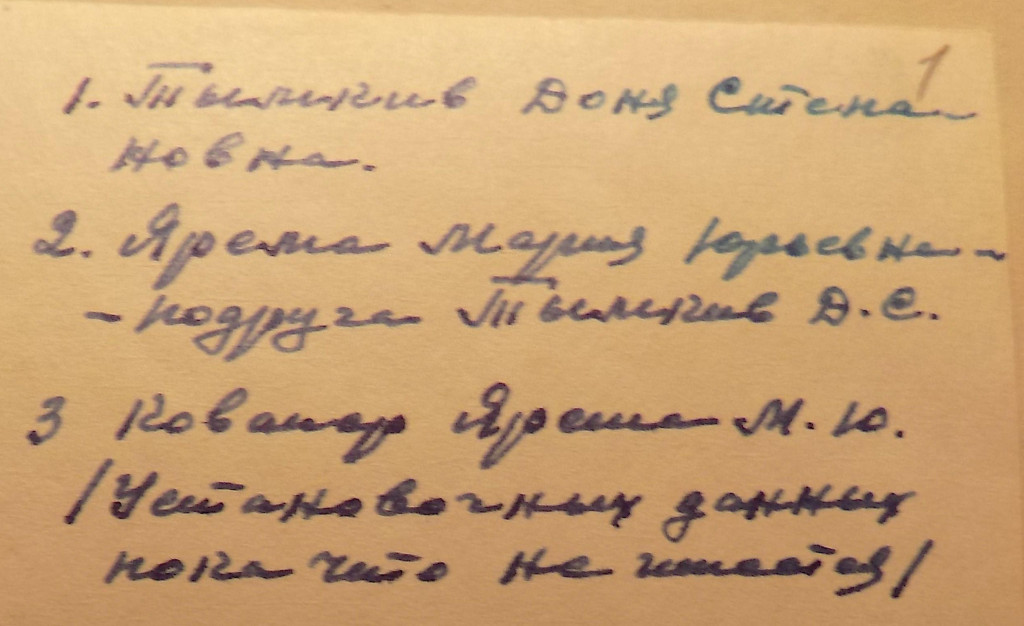 1
1. Тымкив Доня Степа-
новна.
2. Ярема Мария Юрьевна -
- подруга Тымкив Д.С.
3 Ярема М.Ю.
/Установочных данных
пока что не имеется/